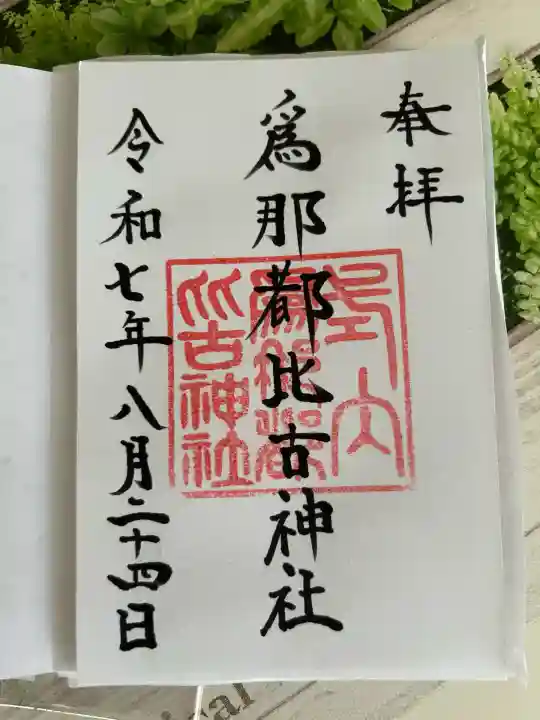 奉拝
爲那都比古神社
式内
爲那都
比古神社
令和七年八月二十四日